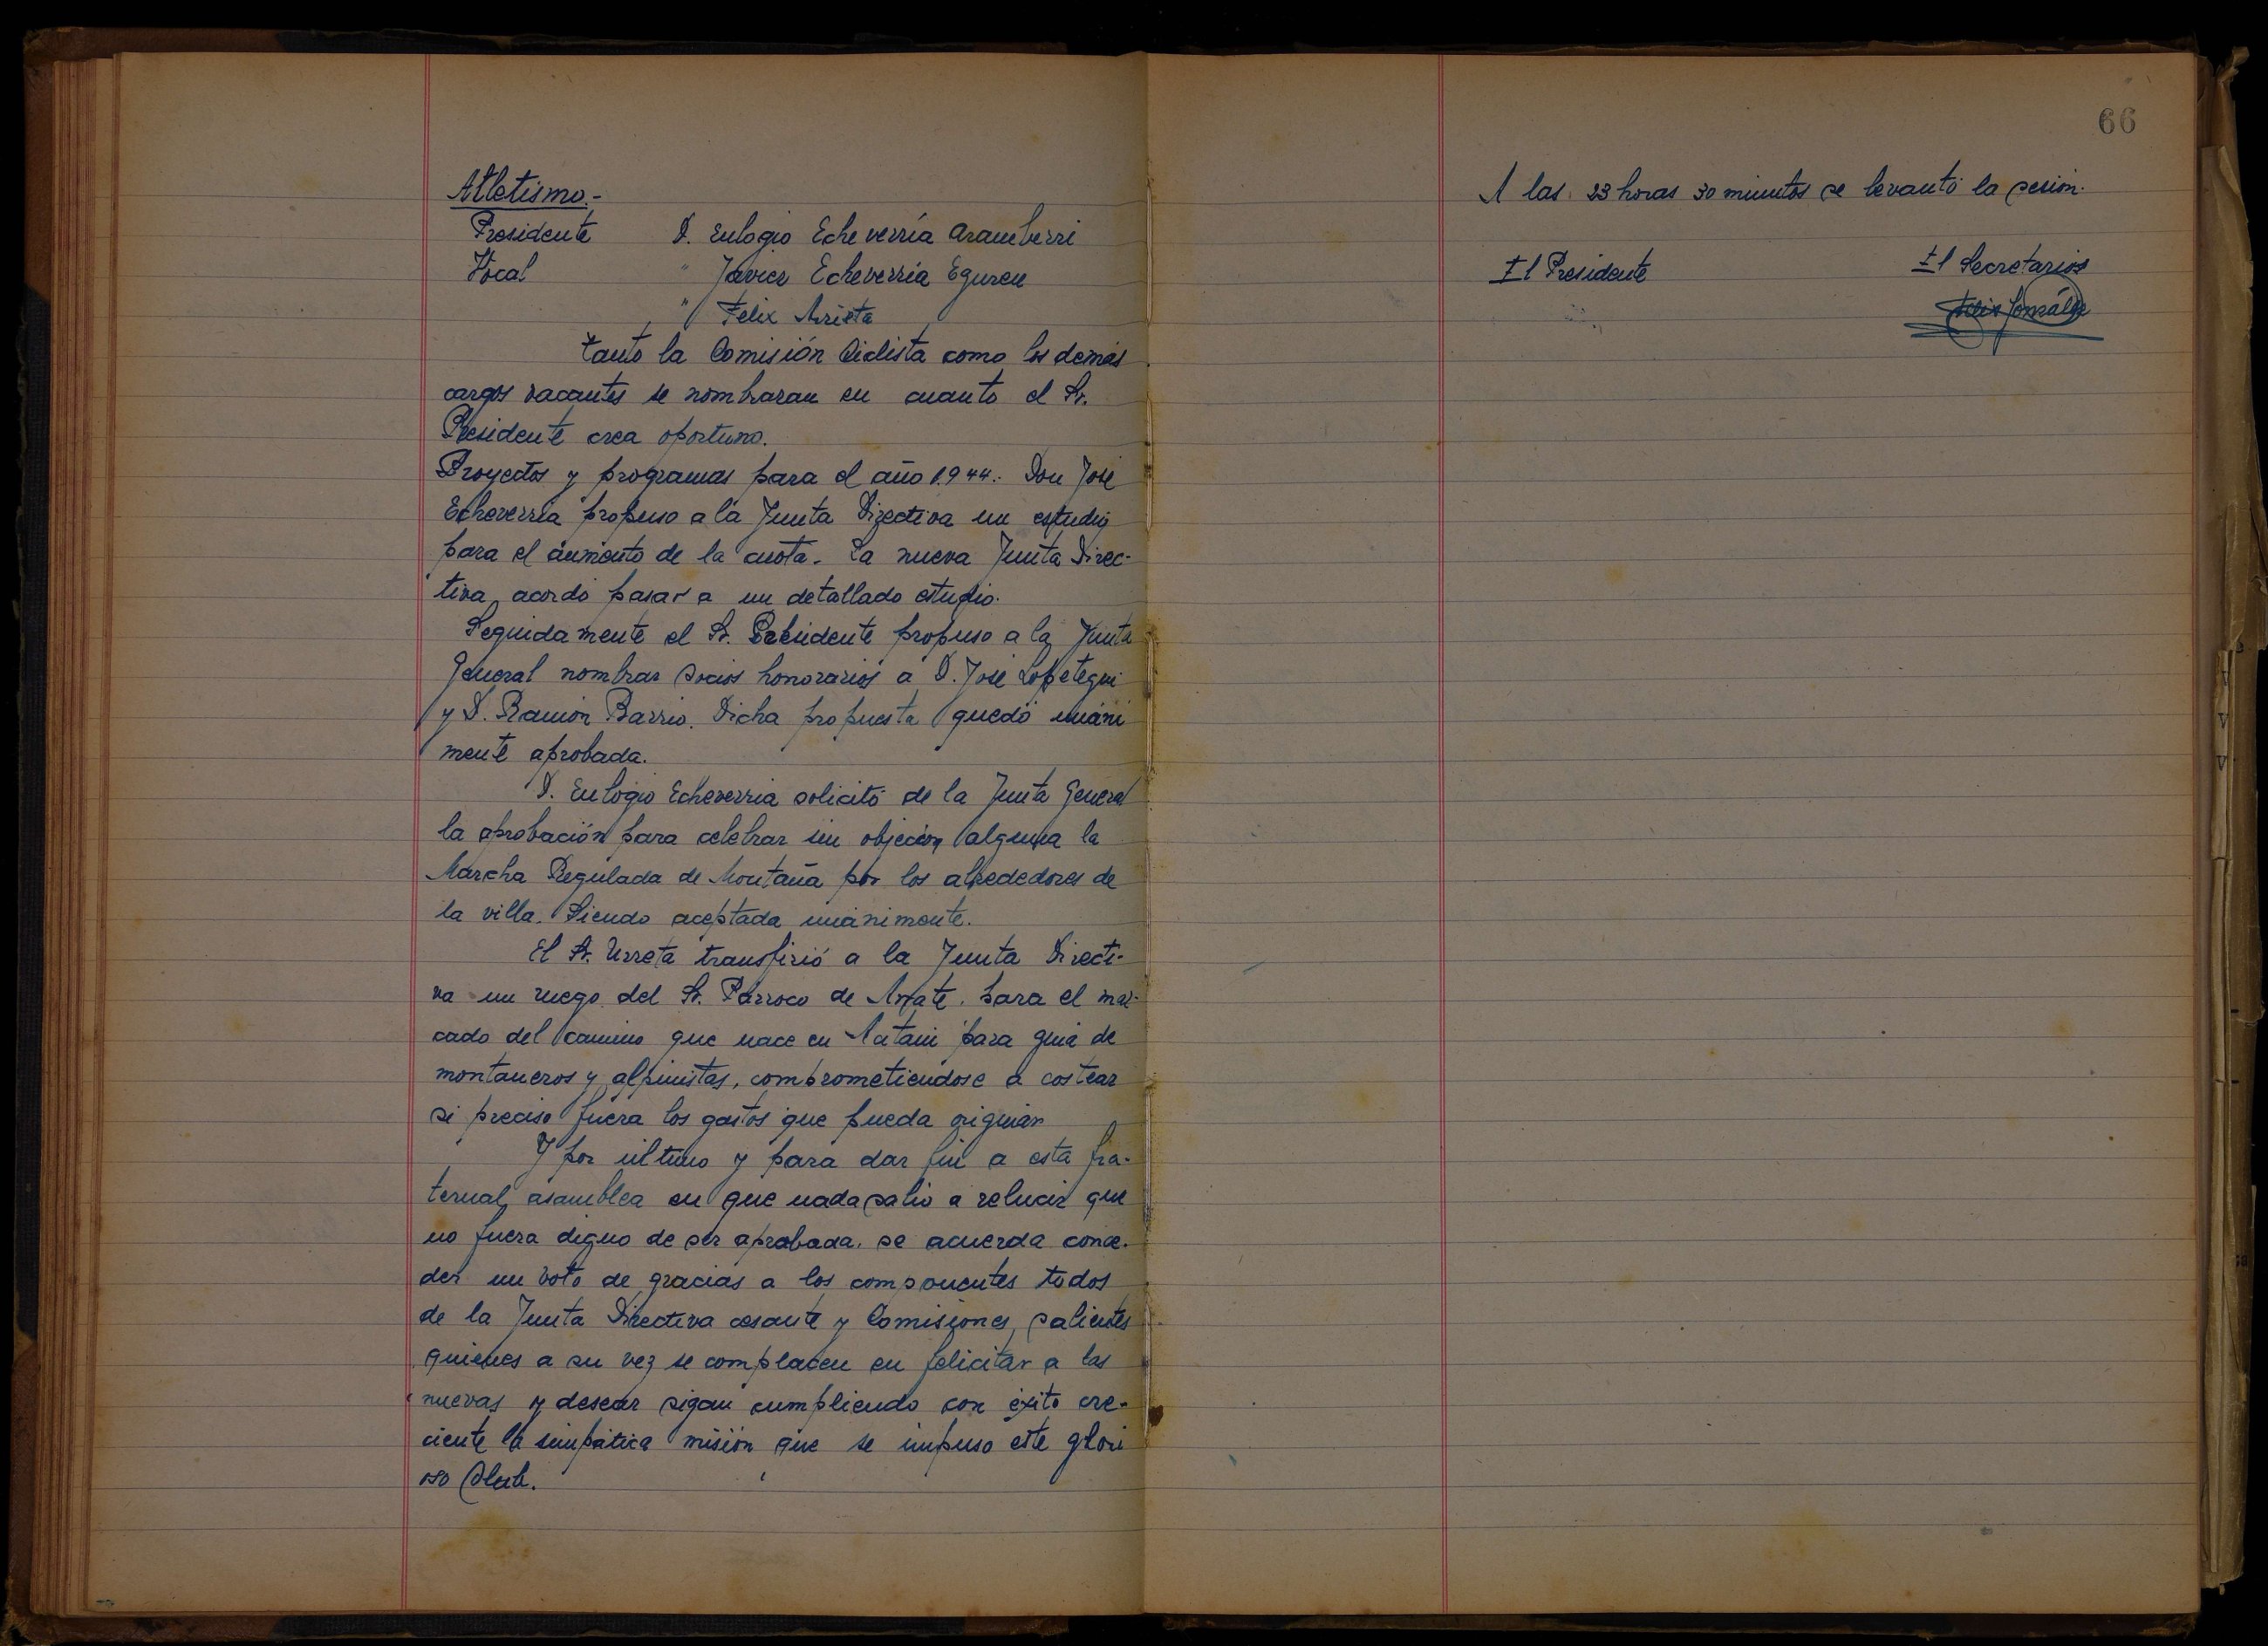 Atletismo.-
Presidente D. Eulogio Echeverría Aramberri
Vocal " Javier Echeverria Eguren
" Felix Arrieta
Tanto la Comisión Ciclista como los demás
cargos vacantes se nombraran en cuanto el Sr.
Presidente crea oportuno.
Proyectos y programas para el año 1.944.- Don José
Echeverría propuso a la Junta Directiva un estudio
para el aumento de la cuota. La nueva Junta Direc-
tiva, acordó pasar a un detallado estudio.
Seguidamente el Sr. Presidente propuso a la Junta
General nombrar socios honorarios a D. José Lopetegui
y D. Ramón Barrio. Dicha propuesta quedó unani
mente aprobada.
D. Eulogio Echeverria solicitó de la Junta General
la aprobación para celebrar sin objeción alguna la
Marcha Regulada de Montaña por los alrededores de
la villa. Siendo aceptada unánimente.
El Sr. Urreta transfirió a la Junta Directi-
va un ruego del Sr. Párroco de Arrate, para el mar-
cado del camino que nace en para guia de
montañeros y alpinistas, comprometiendose a costear
si preciso fuera los gastos que pueda originar
Y por último y para dar fin a esta fra-
ternal asamblea en que nada salio a relucir que
no fuera digno de ser aprobada, se acuerda conce-
der un voto de gracias a los componentes todos
de la Junta Directiva cesante y Comisiones, salientes
quienes a su vez se complacen en felicitar a las
nuevas y desear sigan cumpliendo con éxito cre-
ciente la simpática misión que se impuso este glori
oso Club.
66
A las 23 horas 30 minutos se levantó la sesión.
El Presidente El Secretario
Felix González